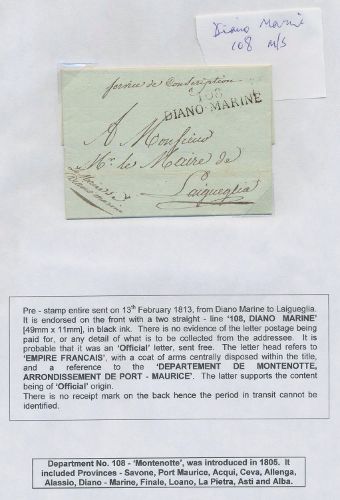 Diano Marine
108 m/s
Service de Conscription
108
DIANO-MARINE
A Monsieur
Mr. le Maire de
Laigueglia
Pre - stamp entire sent on 13th February 1813, from Diano Marine to Laigueglia.
It is endorsed on the front with a two straight - line '108, DIANO MARINE'
[49mm x 11mm], in black ink. There is no evidence of the letter postage being
paid for, or any detail of what is to be collected from the addressee. It is
probable that it was an 'Official' letter, sent free. The letter head refers to
'EMPIRE FRANCAIS', with a coat of arms centrally disposed within the title,
and a reference to the 'DEPARTEMENT DE MONTENOTTE,
ARRONDISSEMENT DE PORT - MAURICE'. The latter supports the content
being of 'Official' origin.
There is no receipt mark on the back hence the period in transit cannot be
identified.
Department No. 108 - 'Montenotte', was introduced in 1805. It
included Provinces - Savone, Port Maurice, Acqui, Ceva, Allenga,
Alassio, Diano - Marine, Finale, Loano, La Pietra, Asti and Alba.